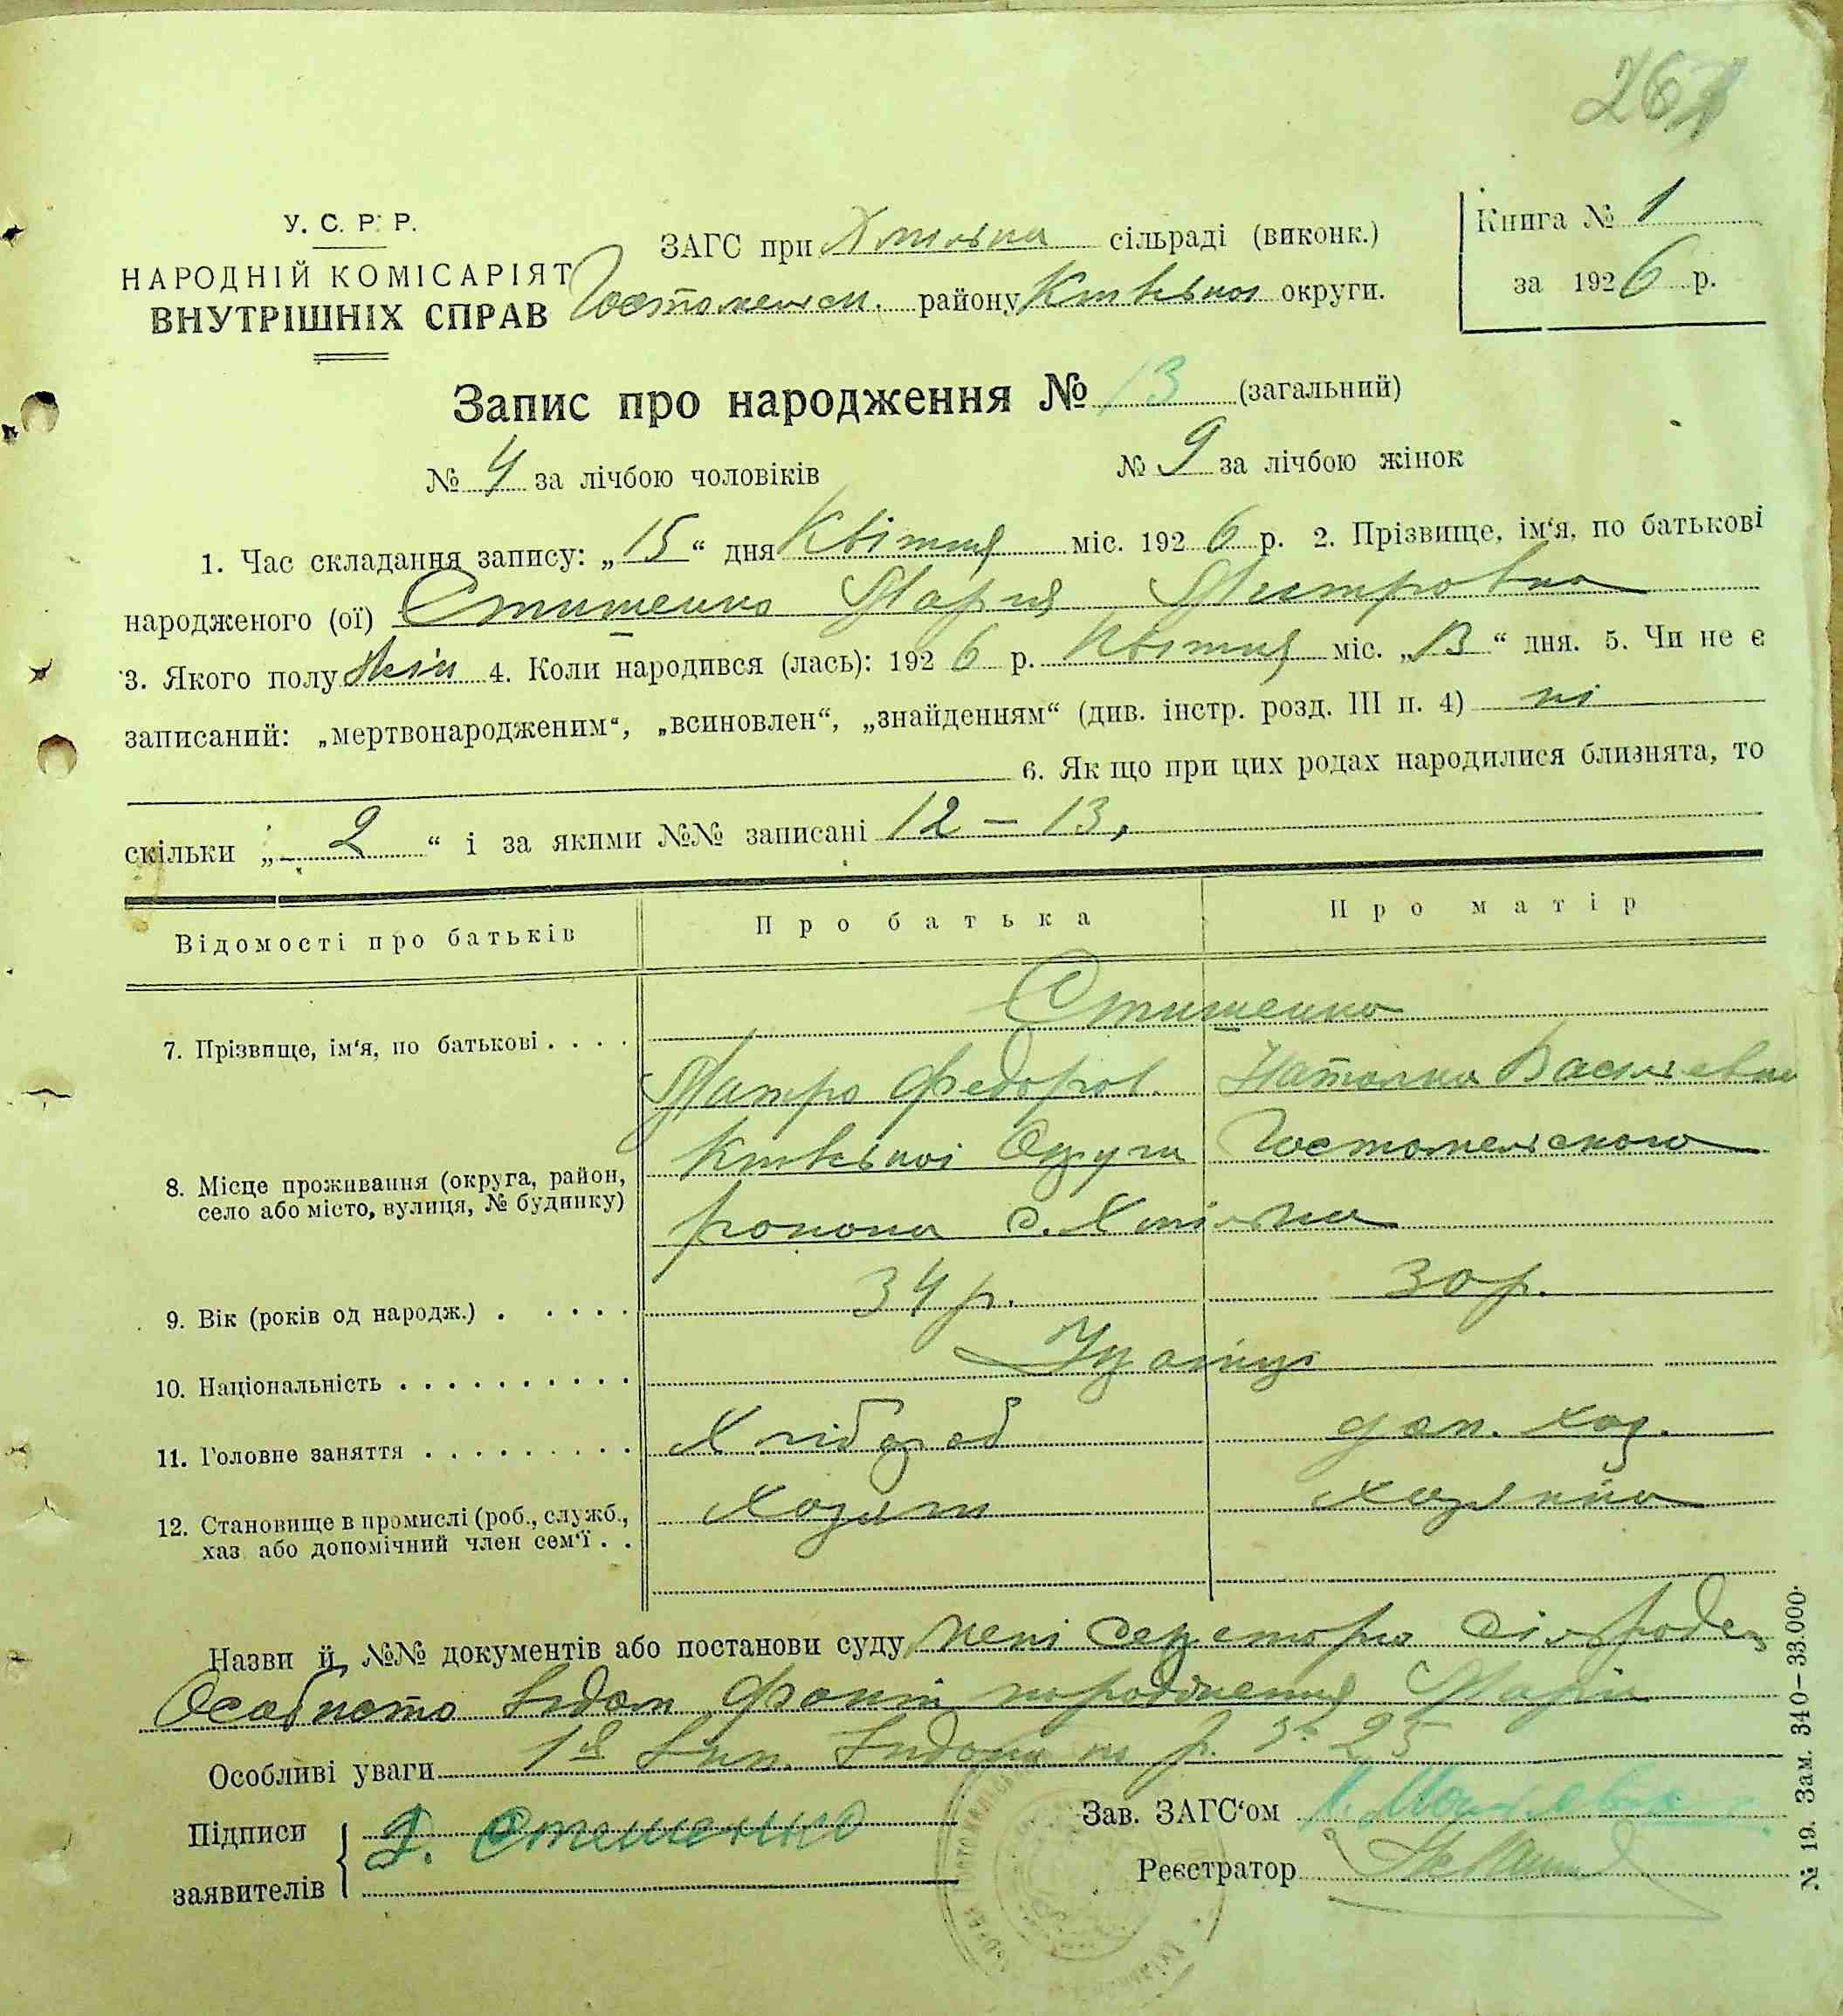 261
У. С. Р. Р.
НАРОДНІЙ КОМІСАРІЯТ
ВНУТРІШНІХ СПРАВ
ЗАГС при сільраді (виконк.)
Гостомельск. району Київської округи.
Книга № 1
за 1926 р.
Запис про народження № 13 (загальний)
№ 4 за лічбою чоловіків № 9 за лічбою жінок
1. Час складання запису: „15“ дня Квітня міс. 1926 р. 2. Прізвище, ім‘я, по батькові
народженого (ої) Стишенко Мария
3. Якого полу жін 4. Коли народився (лась): 1926 р. Квітня міс. „13“ дня. 5. Чи не є
записаний: „мертвонародженим“, „всиновлен“, „знайденням“ (див. інстр. розд. III п. 4) ні
6. Як що при цих родах народилися близнята, то
скільки „ 2 “ і за якими №№ записані 12 – 13,
Відомості про батьків Про батька Про матір
Стишенко
7. Прізвище, ім‘я, по батькові . . . .
Федоров. Наталка Василевна
8. Місце проживання (округа, район,
село або місто, вулиця, № будинку)
Київської Округи Гостомельского
района с.
9. Вік (років од народж.) . . . . . 34 р. 30 р.
10. Національність . . . . . . . . . .
11. Головне заняття . . . . . . . . . Хлібороб
12. Становище в промислі (роб., служб.,
хаз. або допомічний член сем‘ї . .
Хазяїн хазяйка
Назви й №№ документів або постанови суду мені секеторю сільради
Особисто відом факт народження Марії
Особливі уваги
Підписи
заявителів
Ф. Стешенко
Зав. ЗАГС‘ом
Реєстратор
№ 19. Зам. 340–33.000.